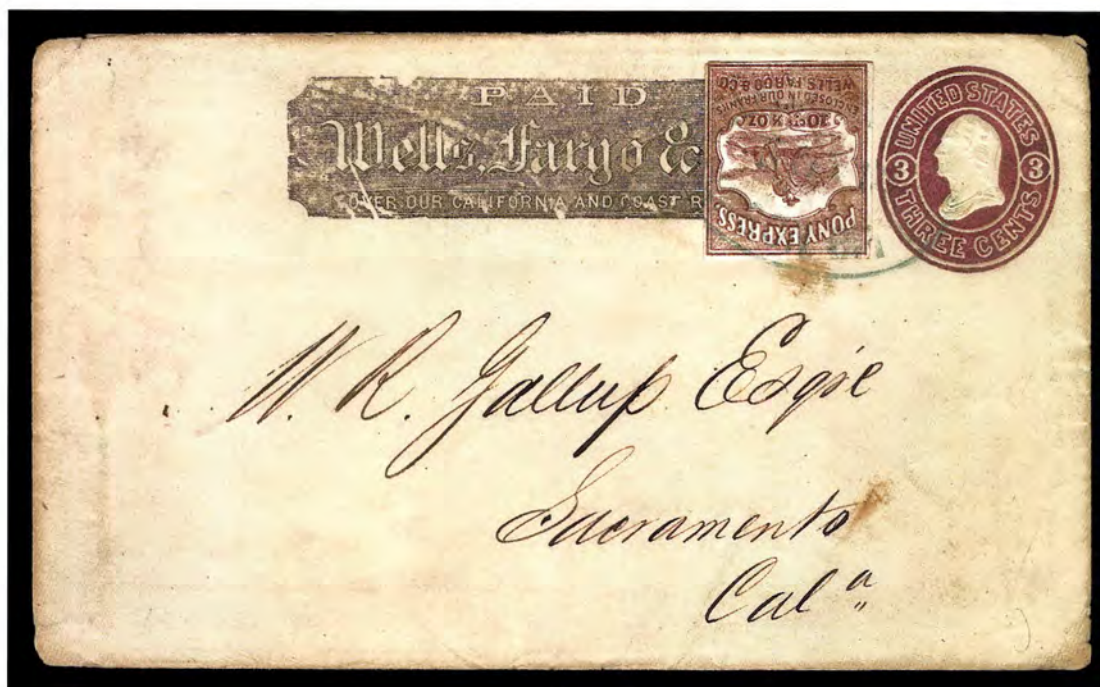 PAID
Wells, Fargo &
OVER OUR CALIFORNIA AND COAST R
PONY EXPRESS.
ENCLOSED IN OUR FRANKS
WELLS FARGO & CO.
UNITED STATES
3 3
THREE CENTS
W. R. Gallup Esqre
Sacramento
Cala